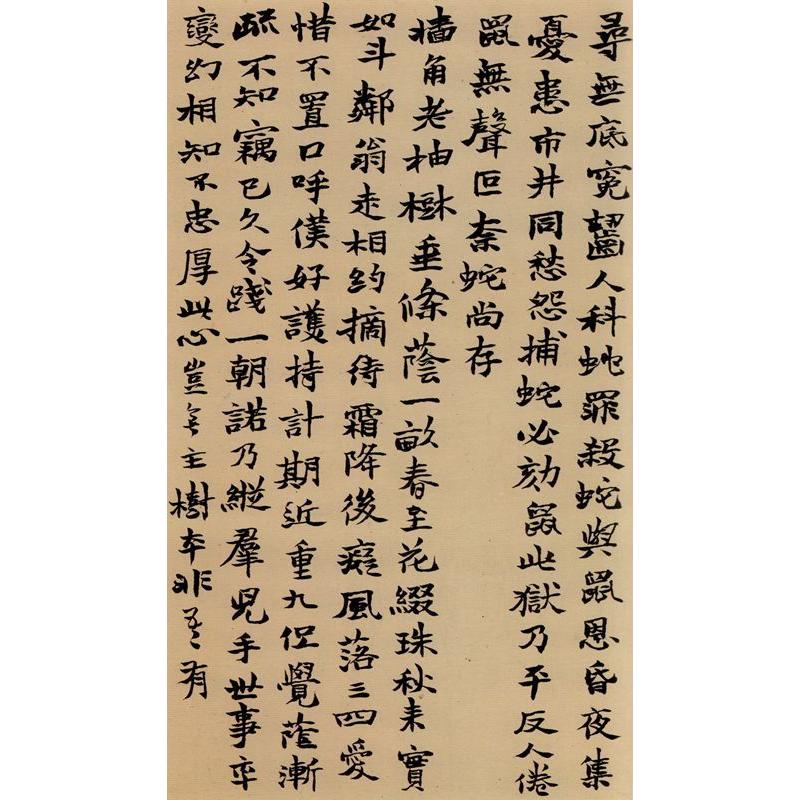 尋無底寃齧人科虵罪殺蛇與鼠恩昏夜集
憂患市井同愁怨捕蛇必劾鼠此獄乃平反人倦
鼠無聲叵柰蛇尚存
墙角老柚樹垂條蔭一畝春至花綴珠秋来實
如斗鄰翁走相約摘待霜降後癡風落三四愛
惜不置口呼僕好護持計期近重九但覺蔭漸
疏不知竊已久令踐一朝諾乃縱羣兒手世事率
變幻相知不忠厚此心豈無主樹本非吾有